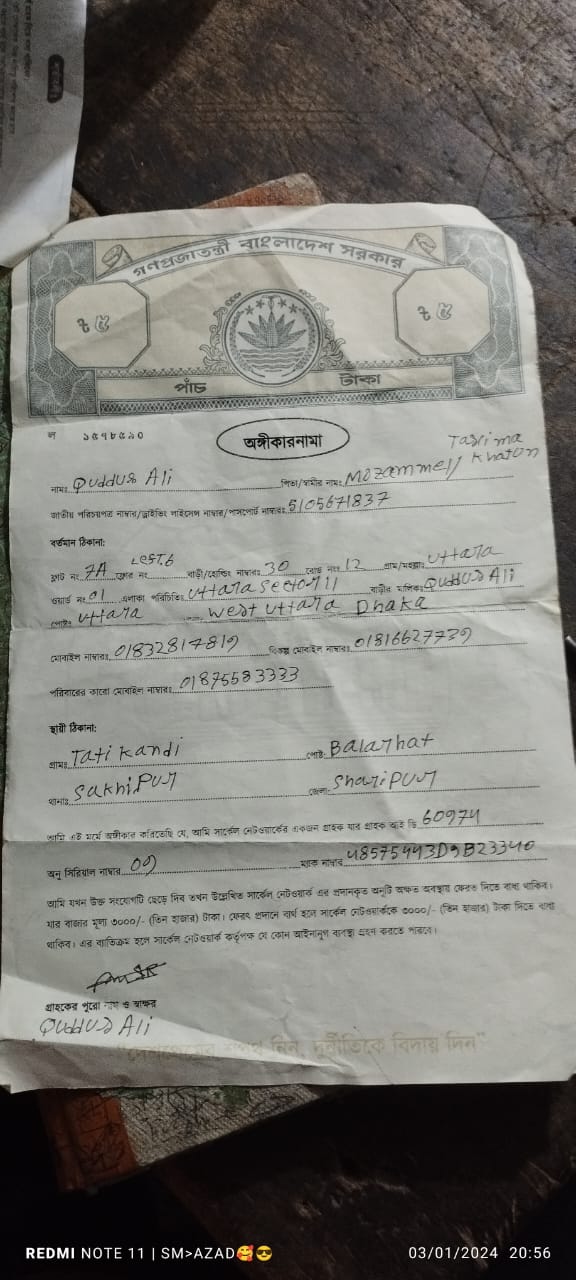 গণপ্রজাতন্ত্রী বাংলাদেশ সরকার
৳ ৫ ৳ ৫
পাঁচ টাকা
ল ১৫৭৮৫৯০
অঙ্গীকারনামা
Taslima
নামঃ Quddus Ali পিতা/স্বামীর নামঃ Mozammel/ Khaton
জাতীয় পরিচয়পত্র নাম্বার/ড্রাইভিং লাইসেন্স নাম্বার/পাসপোর্ট নাম্বারঃ 5105671837
বর্তমান ঠিকানা:
ফ্লাট নং 7A ফ্লোর নং Lest.6 বাড়ী/হোল্ডিং নাম্বারঃ 30 রোড নংঃ 12 গ্রাম/মহল্লাঃ Uttara
ওয়ার্ড নং 01 এলাকা পরিচিতিঃ Uttara Sector 11 বাড়ীর মালিকঃ Quddus Ali
পোষ্টঃ Uttara West Uttara Dhaka
মোবাইল নাম্বারঃ 01832817819 বিকল্প মোবাইল নাম্বারঃ 01816627739
পরিবারের কারো মোবাইল নাম্বারঃ 01875583333
স্থায়ী ঠিকানা:
গ্রামঃ Tatikandi পোষ্ট: Balarhat
থানাঃ Sakhipur জেলা: Sharipur
আমি এই মর্মে অঙ্গীকার করিতেছি যে, আমি সার্কেল নেটওয়ার্কের একজন গ্রাহক যার গ্রাহক আই ডি 60974
অনু সিরিয়াল নাম্বার 09 ম্যাক নাম্বার 48575443D9B23340
আমি যখন উক্ত সংযোগটি ছেড়ে দিব তখন উল্লেখিত সার্কেল নেটওয়ার্ক এর প্রদানকৃত অনুটি অক্ষত অবস্থায় ফেরত দিতে বাধ্য থাকিব।
যার বাজার মূল্য ৩০০০/- (তিন হাজার) টাকা। ফেরৎ প্রদানে ব্যর্থ হলে সার্কেল নেটওয়ার্ককে ৩০০০/- (তিন হাজার) টাকা দিতে বাধ্য
থাকিব। এর ব্যতিক্রম হলে সার্কেল নেটওয়ার্ক কর্তৃপক্ষ যে কোন আইনানুগ ব্যবস্থা গ্রহন করতে পারবে।
গ্রাহকের পুরো নাম ও স্বাক্ষর
Quddus Ali
"দেশপ্রেমের শপথ নিন, দুর্নীতিকে বিদায় দিন"
REDMI NOTE 11 | SM>AZAD🥰😎 03/01/2024 20:56